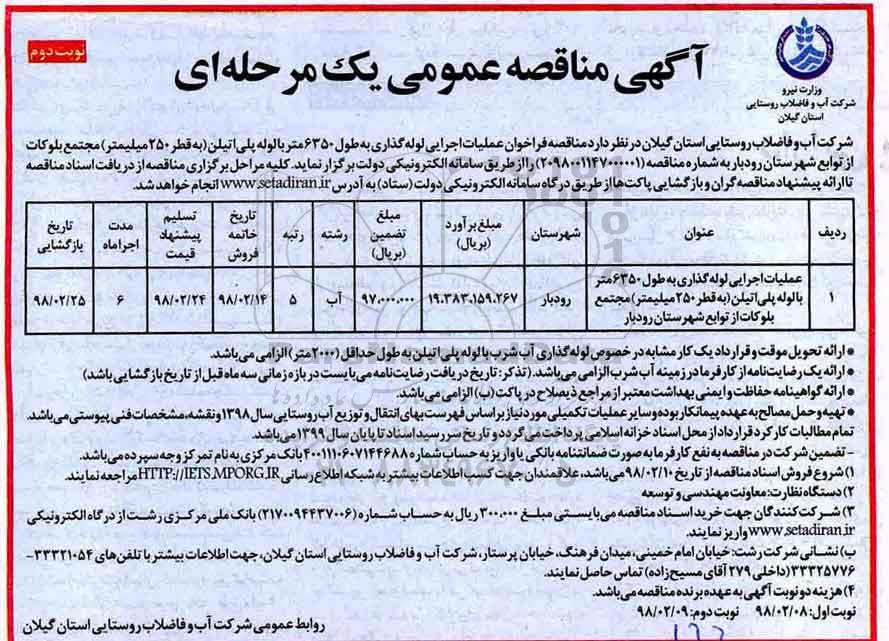 نوبت دوم
آگهی مناقصه عمومی یک مرحله‌ای
وزارت نیرو
شرکت آب و فاضلاب روستایی
استان گیلان
شرکت آب و فاضلاب روستایی استان گیلان در نظر دارد مناقصه فراخوان عملیات اجرایی لوله گذاری به طول ۶۳۵۰ متر با لوله پلی اتیلن (به قطر ۲۵۰ میلیمتر) مجتمع بلوکات
از توابع شهرستان رودبار به شماره مناقصه (۲۰۹۸۰۰۱۱۴۷۰۰۰۰۰۱) را از طریق سامانه الکترونیکی دولت برگزار نماید. کلیه مراحل برگزاری مناقصه از دریافت اسناد مناقصه
تا ارائه پیشنهاد مناقصه گران و بازگشایی پاکت‌ها از طریق درگاه سامانه الکترونیکی دولت (ستاد) به آدرس www.setadiran.ir انجام خواهد شد.
ردیف | عنوان | شهرستان | مبلغ برآورد (بریال) | مبلغ تضمین (بریال) | رشته | رتبه | تاریخ خاتمه فروش | تسلیم پیشنهاد قیمت | مدت اجرا ماه | تاریخ بازگشایی
۱ | عملیات اجرایی لوله گذاری به طول ۶۳۵۰ متر با لوله پلی اتیلن (به قطر ۲۵۰ میلیمتر) مجتمع بلوکات از توابع شهرستان رودبار | رودبار | ۱۹.۳۸۳.۱۵۹.۲۶۷ | ۹۷۰.۰۰۰.۰۰۰ | آب | ۵ | ۹۸/۰۲/۱۴ | ۹۸/۰۲/۲۴ | ۶ | ۹۸/۰۲/۲۵
* ارائه تحویل موقت و قرارداد یک کار مشابه در خصوص لوله گذاری آب شرب با لوله پلی اتیلن به طول حداقل (۲۰۰۰ متر) الزامی می‌باشد.
* ارائه یک رضایت نامه از کارفرما در زمینه آب شرب الزامی می‌باشد. (تذکر: تاریخ دریافت رضایت نامه می‌بایست در بازه زمانی سه ماه قبل از تاریخ بازگشایی باشد)
* ارائه گواهینامه حفاظت و ایمنی بهداشت معتبر از مراجع ذیصلاح در پاکت (ب) الزامی می‌باشد.
* تهیه و حمل مصالح به عهده پیمانکار بوده و سایر عملیات تکمیلی مورد نیاز بر اساس فهرست بهای انتقال و توزیع آب روستایی سال ۱۳۹۸ و نقشه، مشخصات فنی پیوستی می‌باشد.
تمام مطالبات کارکرد قرارداد از محل اسناد خزانه اسلامی پرداخت می‌گردد و تاریخ سررسید اسناد تا پایان سال ۱۳۹۹ می‌باشد.
- تضمین شرکت در مناقصه به نفع کارفرما به صورت ضمانتنامه بانکی یا واریز به حساب شماره ۴۰۰۱۱۱۰۶۰۷۱۴۴۶۸۸ بانک مرکزی به نام تمرکز وجه سپرده می‌باشد.
۱) شروع فروش اسناد مناقصه از تاریخ ۹۸/۰۲/۱۰ می‌باشد، علاقمندان جهت کسب اطلاعات بیشتر به شبکه اطلاع رسانی HTTP://IETS.MPORG.IR مراجعه نمایند.
۲) دستگاه نظارت: معاونت مهندسی و توسعه
۳) شرکت کنندگان جهت خرید اسناد مناقصه می‌بایستی مبلغ ۳۰۰.۰۰۰ ریال به حساب شماره (۲۱۷۰۰۹۴۴۳۷۰۰۶) بانک ملی مرکزی رشت از درگاه الکترونیکی
www.setadiran.ir واریز نمایند.
ب) نشانی شرکت رشت: خیابان امام خمینی، میدان فرهنگ، خیابان پرستار، شرکت آب و فاضلاب روستایی استان گیلان، جهت اطلاعات بیشتر با تلفن های ۳۳۳۲۱۰۵۴-
۳۳۳۲۵۷۷۶ (داخلی ۲۷۹ آقای مسیح زاده) تماس حاصل نمایند.
۴) هزینه دو نوبت آگهی به عهده برنده مناقصه می‌باشد.
نوبت اول: ۹۸/۰۲/۰۸ نوبت دوم: ۹۸/۰۲/۰۹
روابط عمومی شرکت آب و فاضلاب روستایی استان گیلان